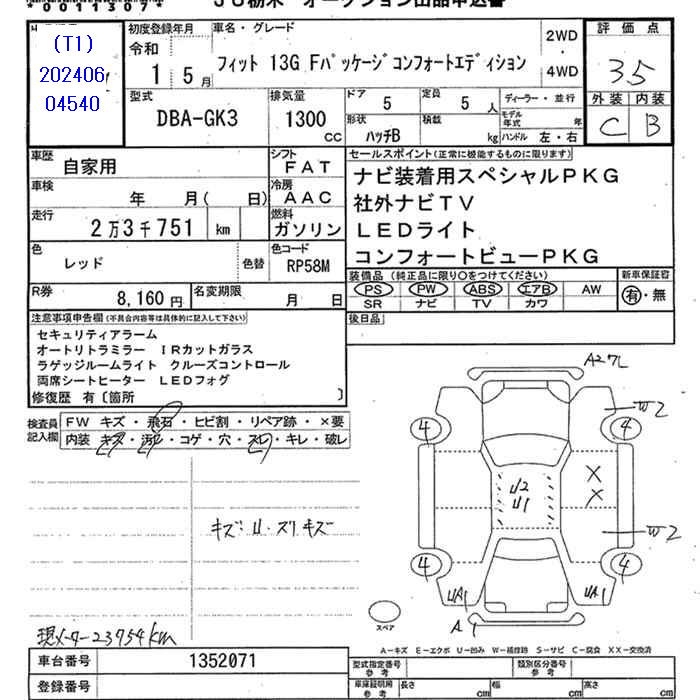 *0011307*
ＪＵ栃木 オークション出品申込書
(T1)
202406
04540
初度登録年月
令和
1 5 月
車名・グレード
フィット 13G Fパッケージコンフォートエディション
2WD
・
4WD
評価点
3.5
外装 内装
C B
型式
DBA-GK3
排気量
1300
CC
ドア
5
定員
5 人
形状
ハッチB
積載
kg
ディーラー・並行
モデル年式 年
ハンドル 左・右
車歴
自家用
シフト
FAT
車検
年 月( 日)
冷房
AAC
走行
2万3千751 km
燃料
ガソリン
色
レッド
色替
色コード
RP58M
R券
8,160 円
名変期限
月 日
セールスポイント(正常に機能するものに限ります)
ナビ装着用スペシャルPKG
社外ナビTV
LEDライト
コンフォートビューPKG
装備品(純正品に限り○をつけてください)
PS PW ABS エアB AW
SR ナビ TV カワ
新車保証書
有・無
後日品
注意事項申告欄(不具合内容等は具体的に記入して下さい)
セキュリティアラーム
オートリトラミラー IRカットガラス
ラゲッジルームライト クルーズコントロール
両席シートヒーター LEDフォグ
修復歴 有〔箇所 〕
検査員
記入欄
FW キズ・飛石・ヒビ割・リペア跡・×要
内装 キズ・汚レ・コゲ・穴・スレ・キレ・破レ
キズ・U・ズリキズ
現メーター23754km
A27L
W2
4
4
U2
U1
X
X
W2
4
4
UA1
UA1
A1
スペア
A-キズ E-エクボ U-凹み W-補修跡 S-サビ C-腐食 XX-交換済
車台番号 1352071
登録番号
型式指定番号
参考
類別区分番号
参考
車庫証明用
参考
長さ cm 幅 cm 高さ cm